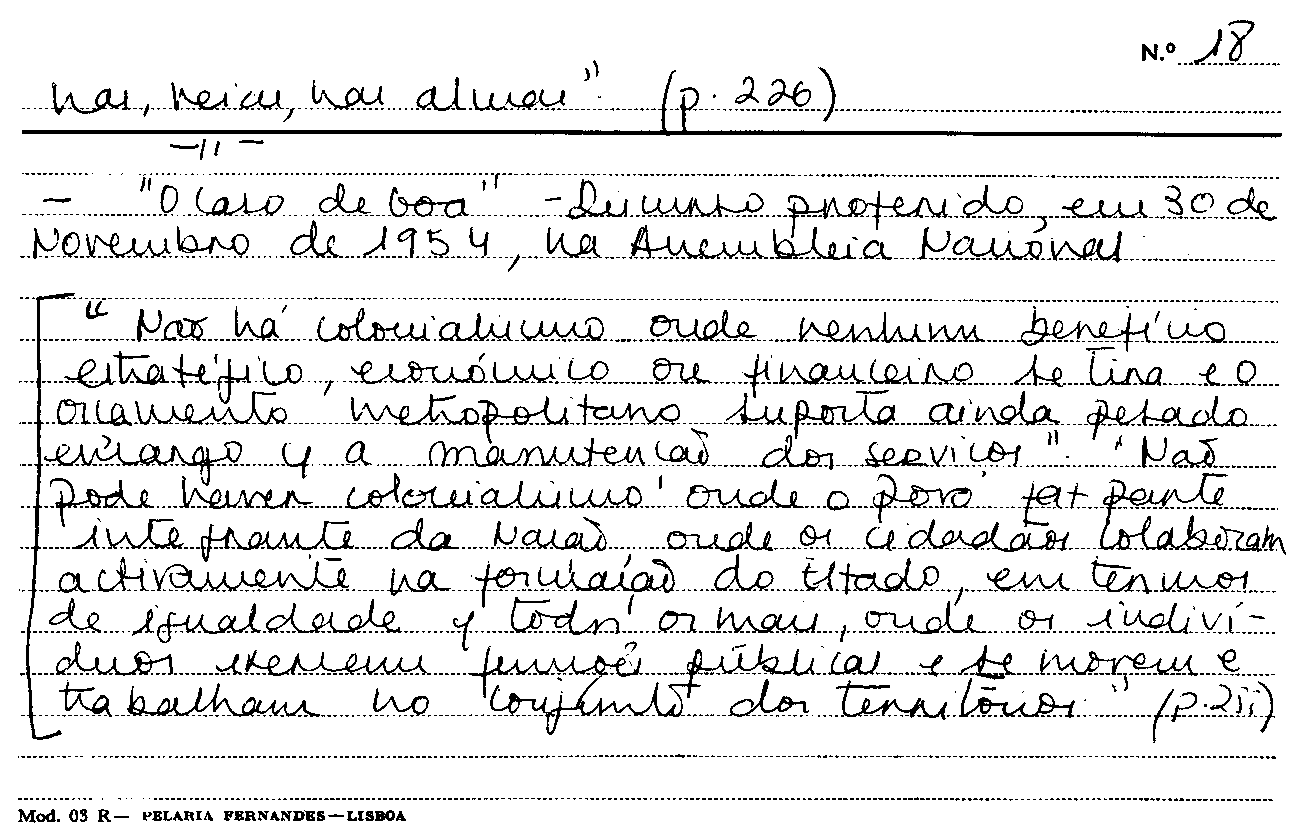 N.º 18
nas, veias, nas almas". (p. 226)
—11—
— "O caso de Goa" - Discurso proferido, em 30 de
Novembro de 1954, na Assembleia Nacional
"Não há colonialismo onde nenhum benefício
estratégico, económico ou financeiro se tira e o
orçamento metropolitano suporta ainda pesado
encargo c/ a manutenção dos serviços". "Não
pode haver colonialismo onde o povo faz parte
integrante da Nação, onde os cidadãos colaboram
activamente na formação do Estado, em termos
de igualdade c/ todos os mais, onde os indiví-
duos exercem funções públicas e se movem e
trabalham no conjunto dos territórios" (p. 211)
Mod. 03 R— PELARIA FERNANDES—LISBOA